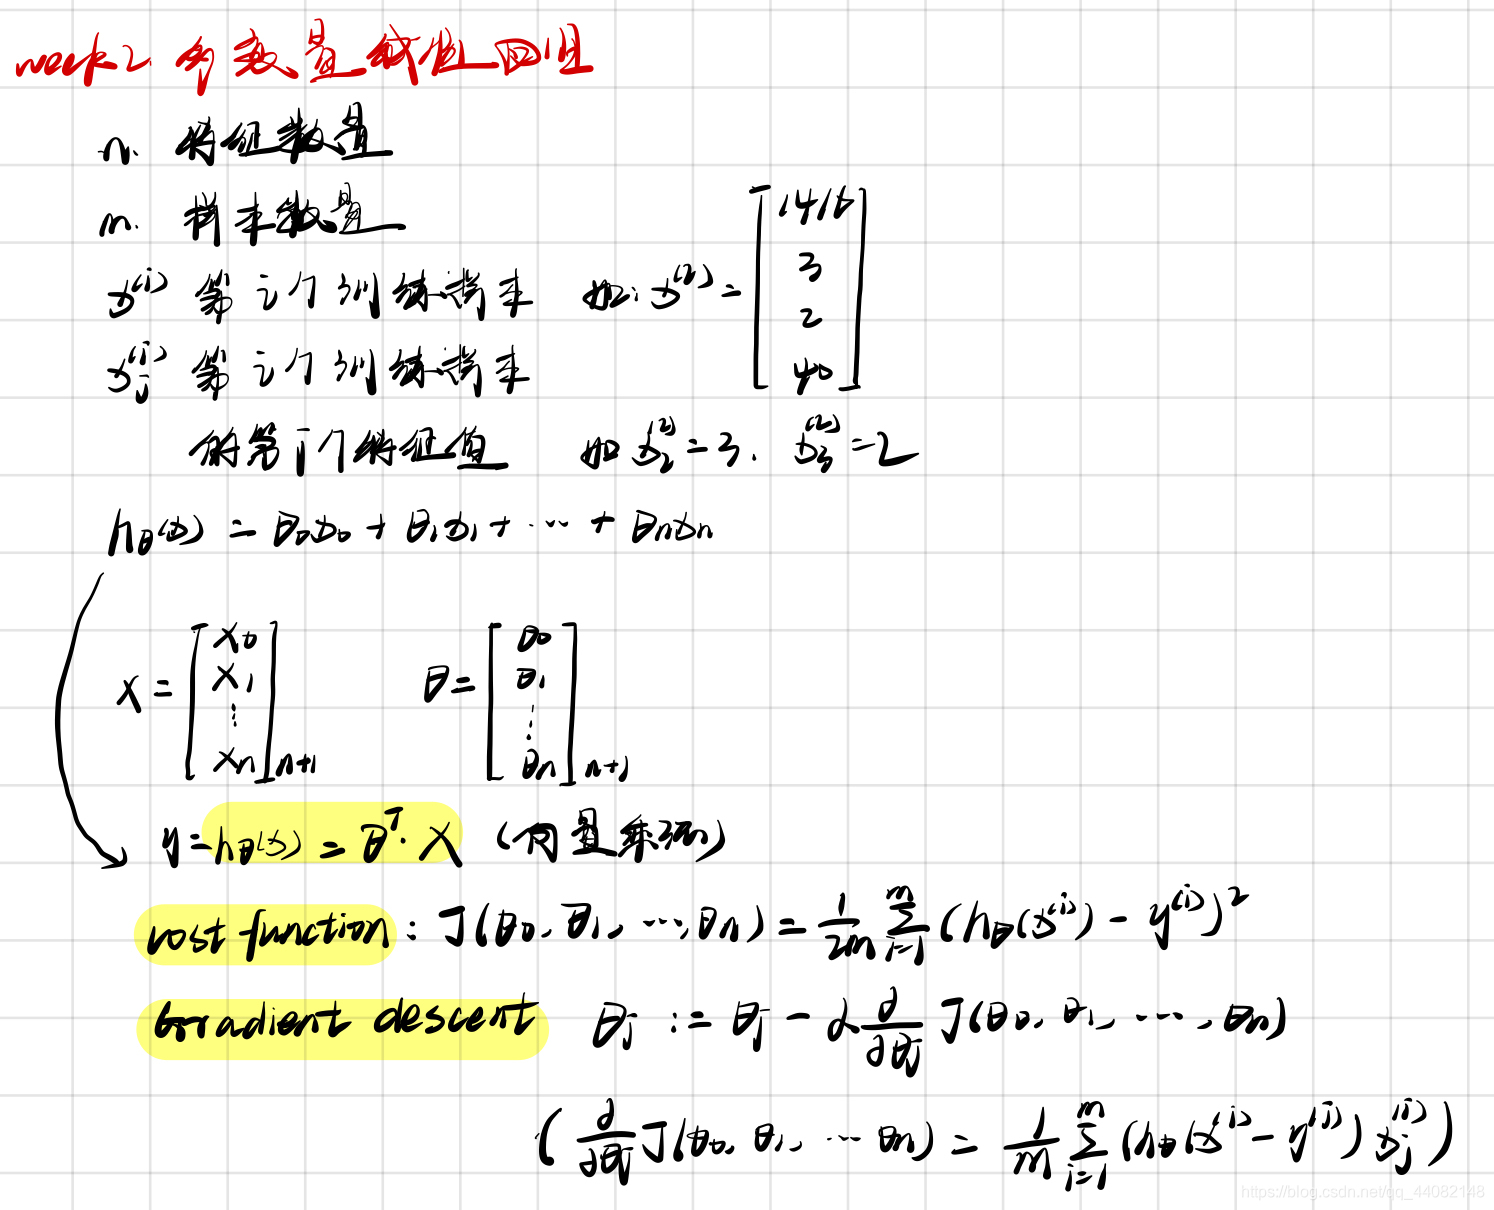 week2 多变量线性回归
n. 特征数量
m. 样本数量
x^(i) 第 i 个训练样本 如: x^(2) = [1416 3 2 40]
x_j^(i) 第 i 个训练样本
的第 j 个特征值 如 x_2^(2) = 3. x_3^(2) = 2
h_θ(x) = θ_0x_0 + θ_1x_1 + ⋯ + θ_nx_n
X = [x_0 x_1 ⋮ x_n]_n+1 θ = [θ_0 θ_1 ⋮ θ_n]_n+1
y = h_θ(x) = θ^T · X (向量乘法)
cost function: J(θ_0, θ_1, ⋯, θ_n) = 1/2m Σ_{i=1}^m (h_θ(x^(i)) - y^(i))^2
Gradient descent θ_j := θ_j - α ∂/∂θ_j J(θ_0, θ_1, ⋯, θ_n)
( ∂/∂θ_j J(θ_0, θ_1, ⋯ θ_n) = 1/m Σ_{i=1}^m (h_θ(x^(i) - y^(i)) x_j^(i) )
https://blog.csdn.net/qq_44082148